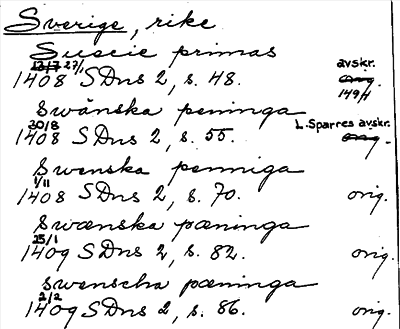 Sverige, rike
Suecie primas
27/1 avskr.
1408 SDns 2, s. 48. orig.
149/1
Swänska peninga
30/8 L. Sparres avskr.
1408 SDns 2, s. 55. orig.
Swenska penniga
1/11
1408 SDns 2, s. 70. orig.
Swænska pæninga
25/1
1409 SDns 2, s. 82. orig.
swenscha pæninga
2/2
1409 SDns 2, s. 86. orig.